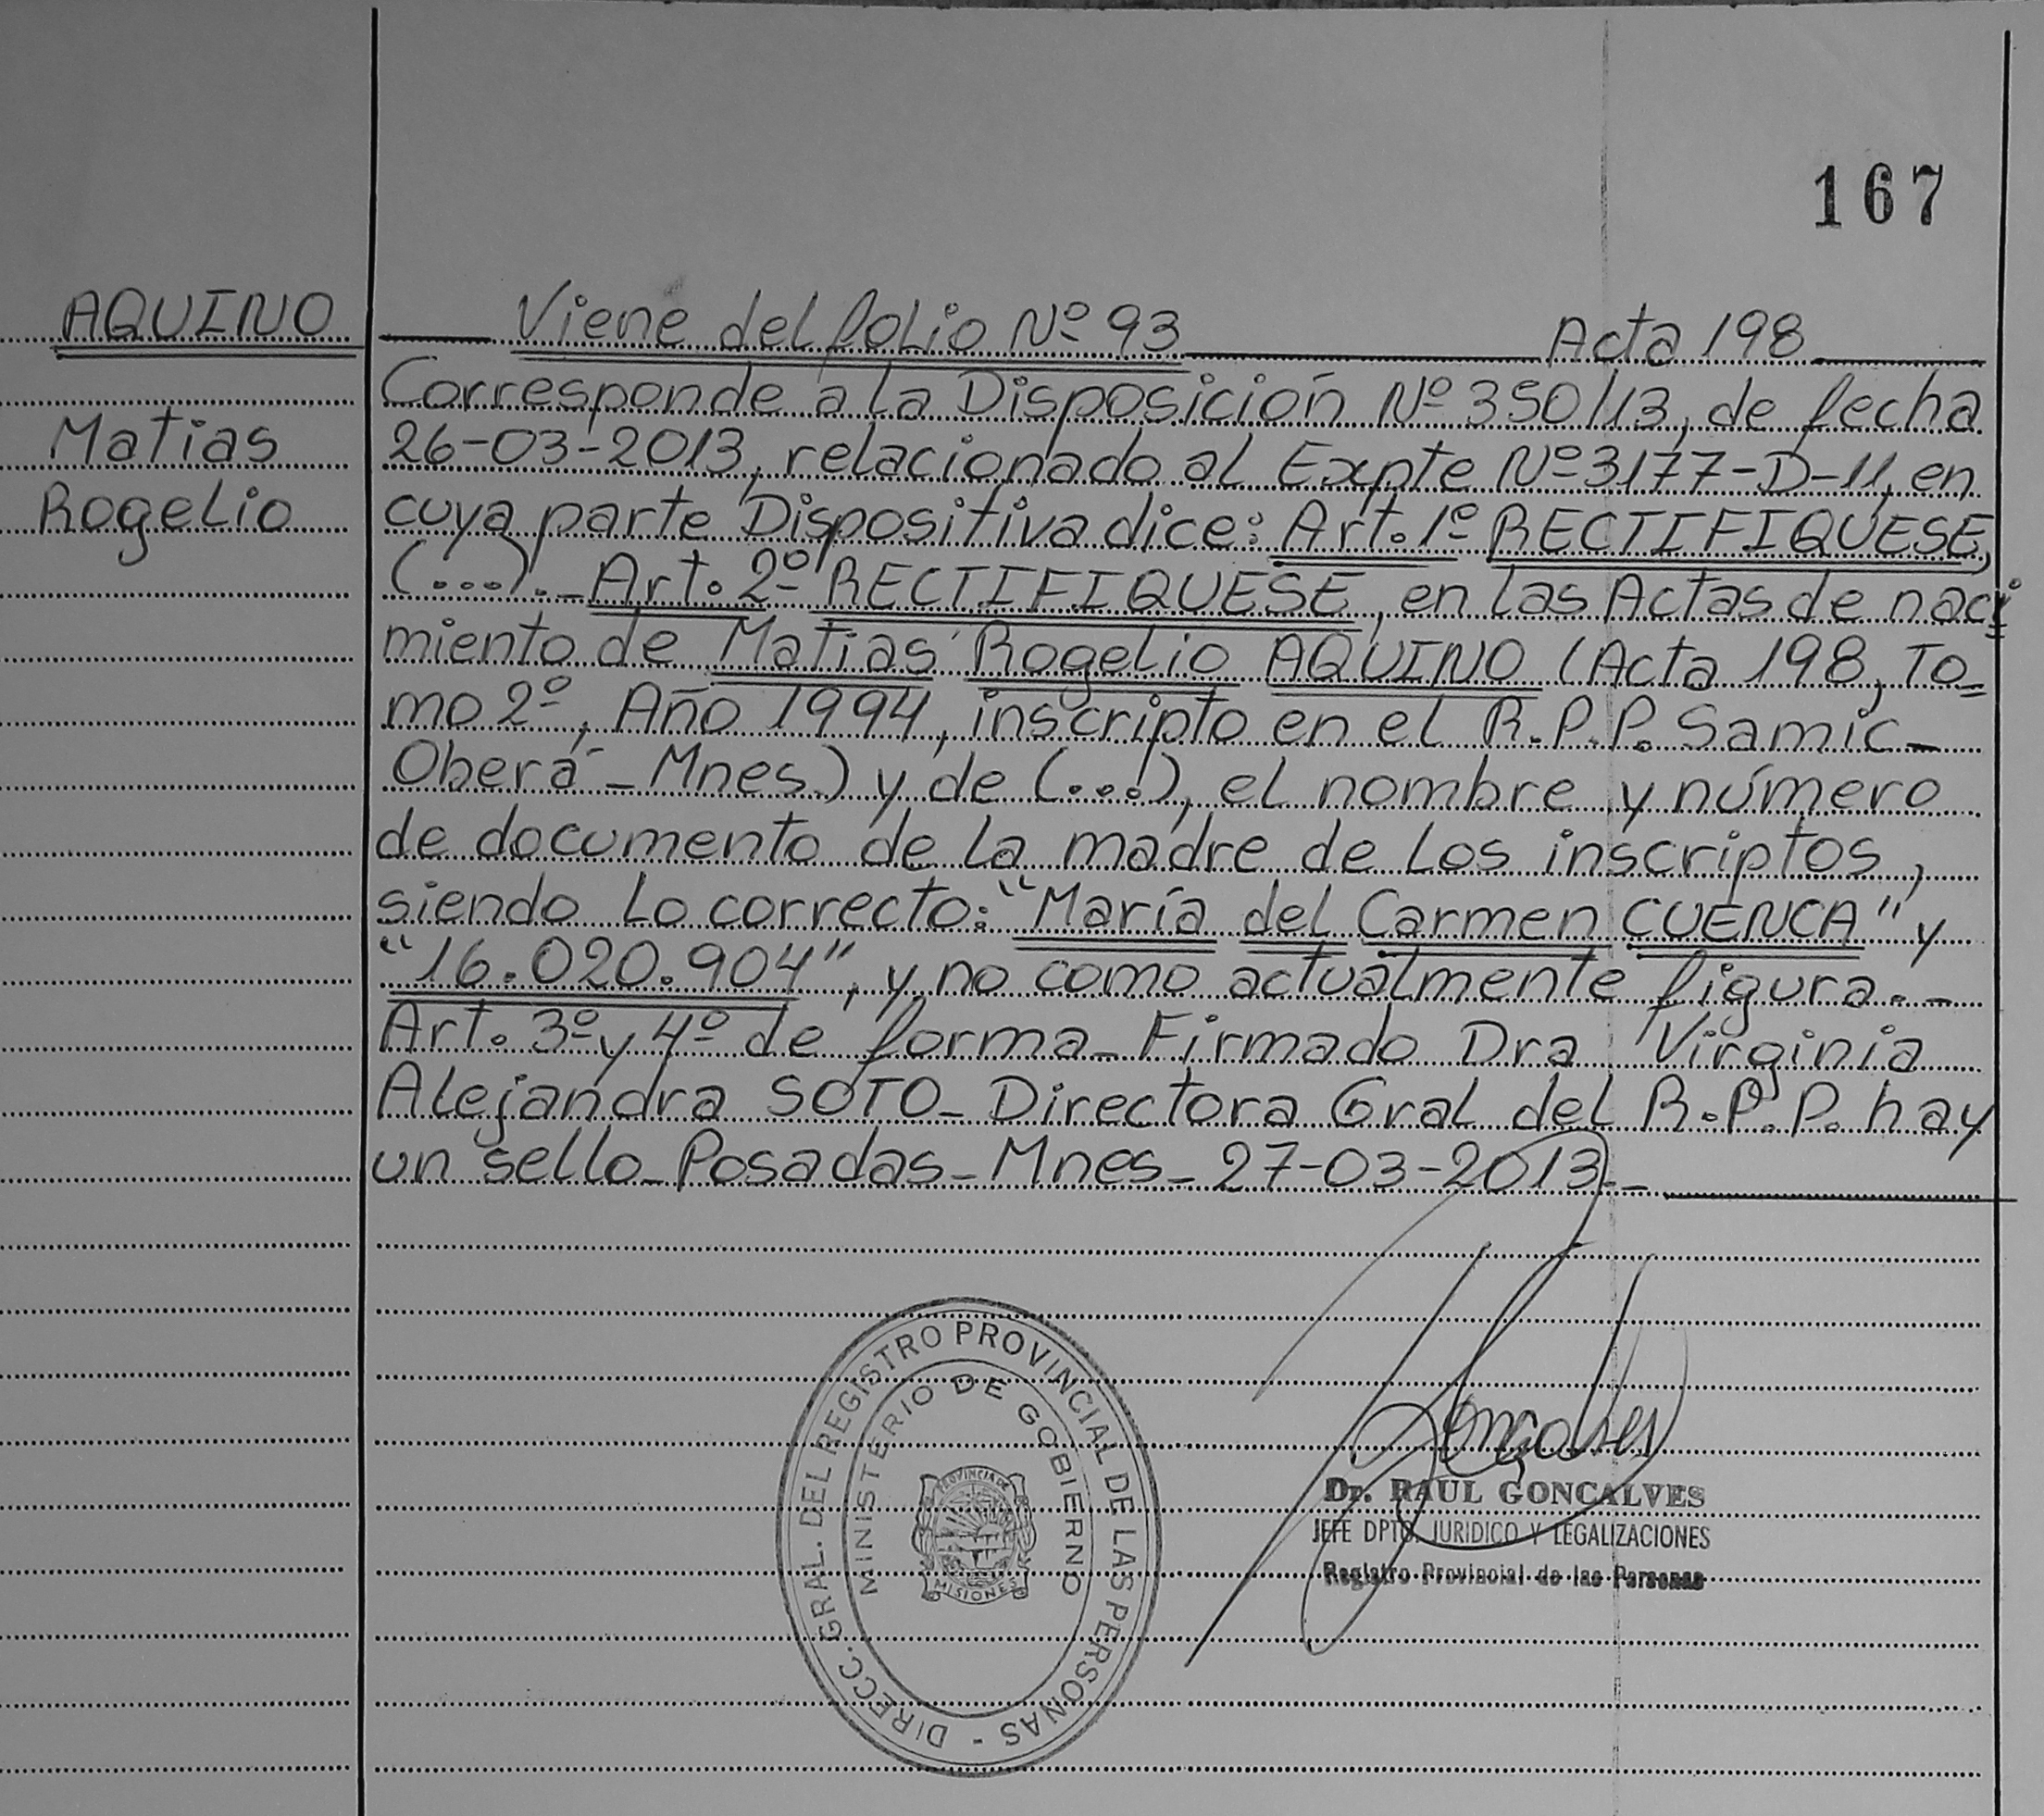 167
AQUINO
Matias
Rogelio
Viene del folio Nº 93 Acta 198
Corresponde a la Disposición Nº 350/13, de fecha
26-03-2013, relacionado al Expte Nº 3177-D-11, en
cuya parte Dispositiva dice: Art. 1º RECTIFIQUESE,
(...)._ Art. 2º RECTIFIQUESE, en las Actas de naci
miento de Matias Rogelio AQUINO (Acta 198, To=
mo 2º, Año 1994, inscripto en el R.P.P. Samic_
Oberá _ Mnes.) y de (...), el nombre y número
de documento de la madre de los inscriptos,
siendo lo correcto: "María del Carmen CUENCA" y
"16.020.904", y no como actualmente figura._
Art. 3º y 4º de forma_ Firmado Dra Virginia
Alejandra SOTO_ Directora Gral del R.P.P. hay
un sello_ Posadas_ Mnes_ 27-03-2013._
DIRECC. GRAL. DEL REGISTRO PROVINCIAL DE LAS PERSONAS -
MINISTERIO DE GOBIERNO
PROVINCIA DE
MISIONES
Goncalves
Dr. RAUL GONCALVES
JEFE DPTO. JURIDICO Y LEGALIZACIONES
Registro Provincial de las Personas